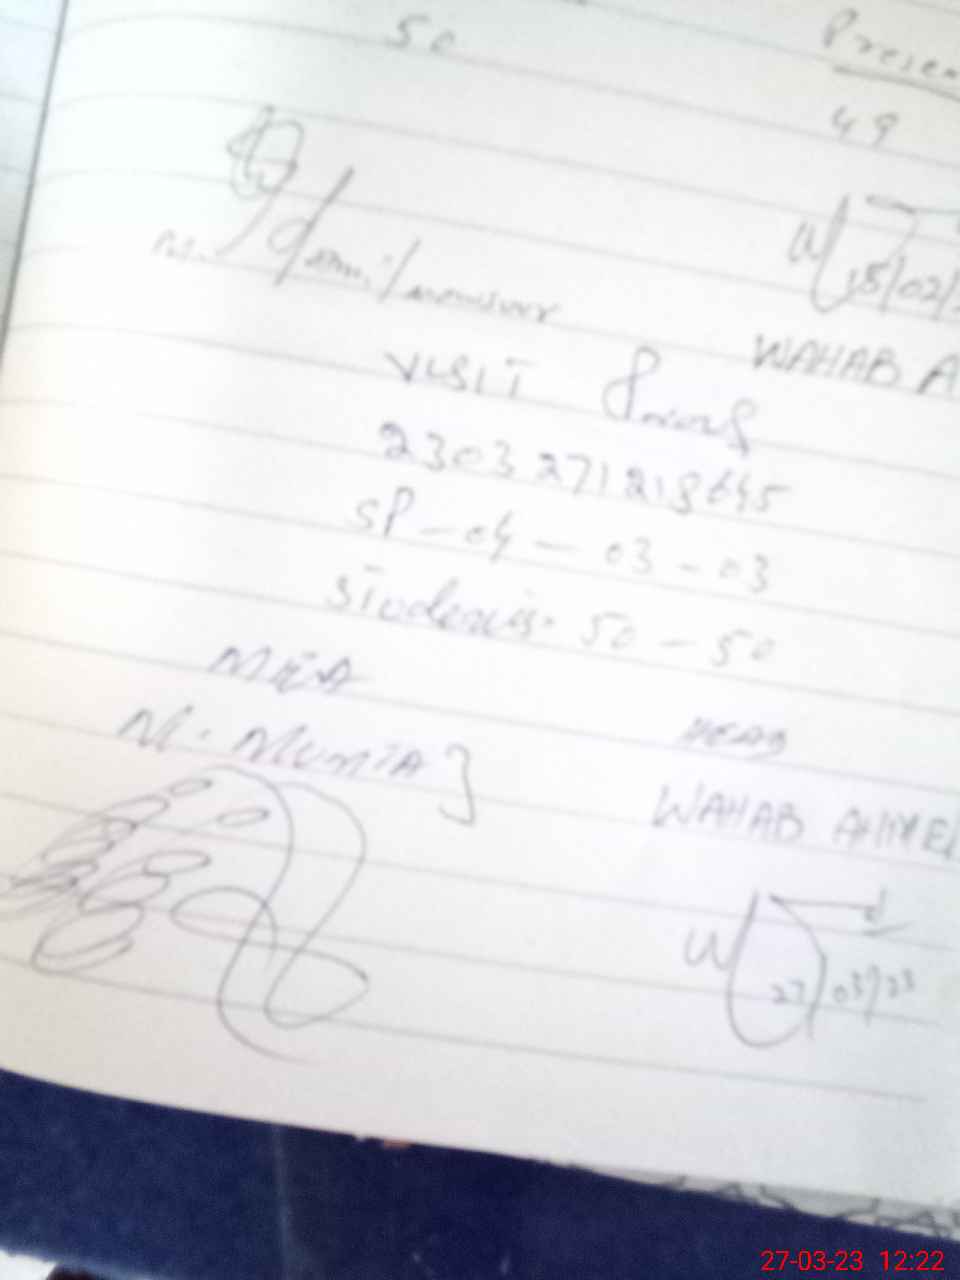 50
Presen
49
15/02/
WAHAB A
VISIT Proof
2303271218645
SP-04-03-03
Students. 50-50
MEA
M. Mumtaz
HEAD
WAHAB AHME
27/03/23
27-03-23 12:22